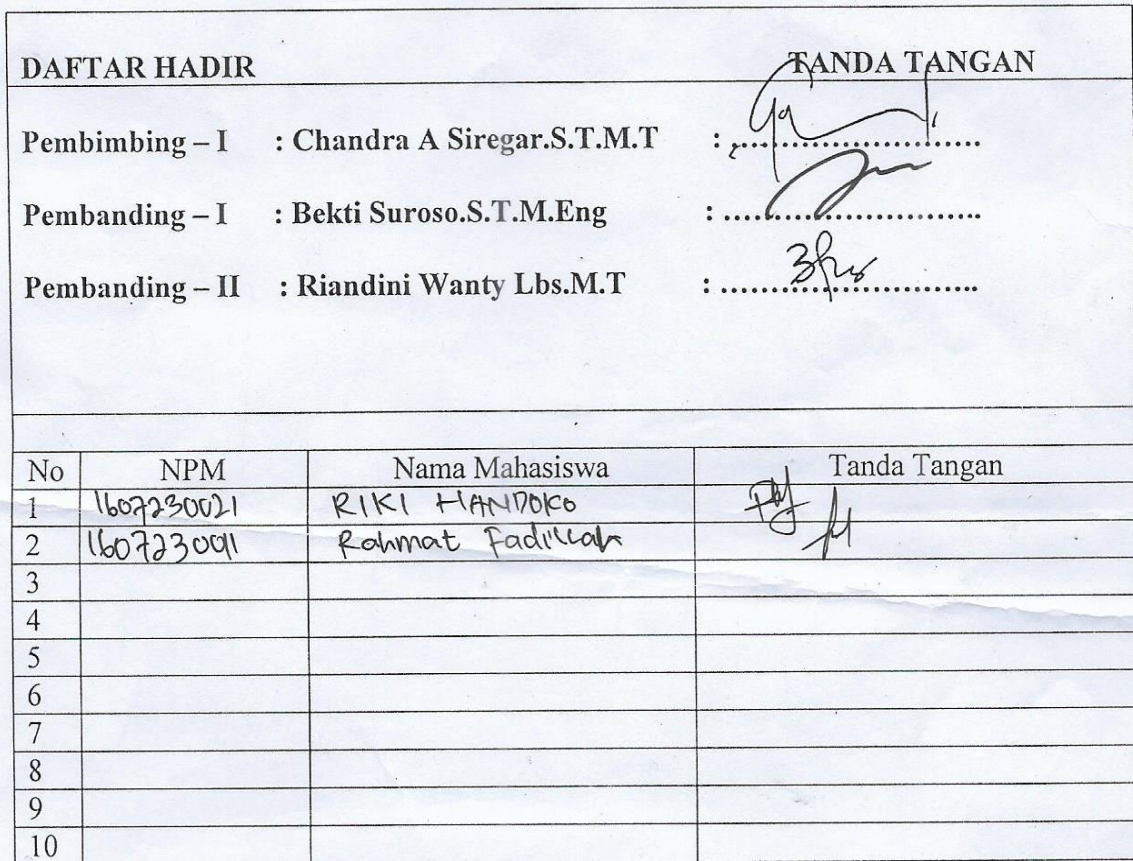 DAFTAR HADIR TANDA TANGAN
Pembimbing – I : Chandra A Siregar.S.T.M.T : ..............................
Pembanding – I : Bekti Suroso.S.T.M.Eng : ..............................
Pembanding – II : Riandini Wanty Lbs.M.T : ..............................
No NPM Nama Mahasiswa Tanda Tangan
1 1607230021 RIKI HANDOKO
2 1607230091 Rahmat Fadillah
3
4
5
6
7
8
9
10